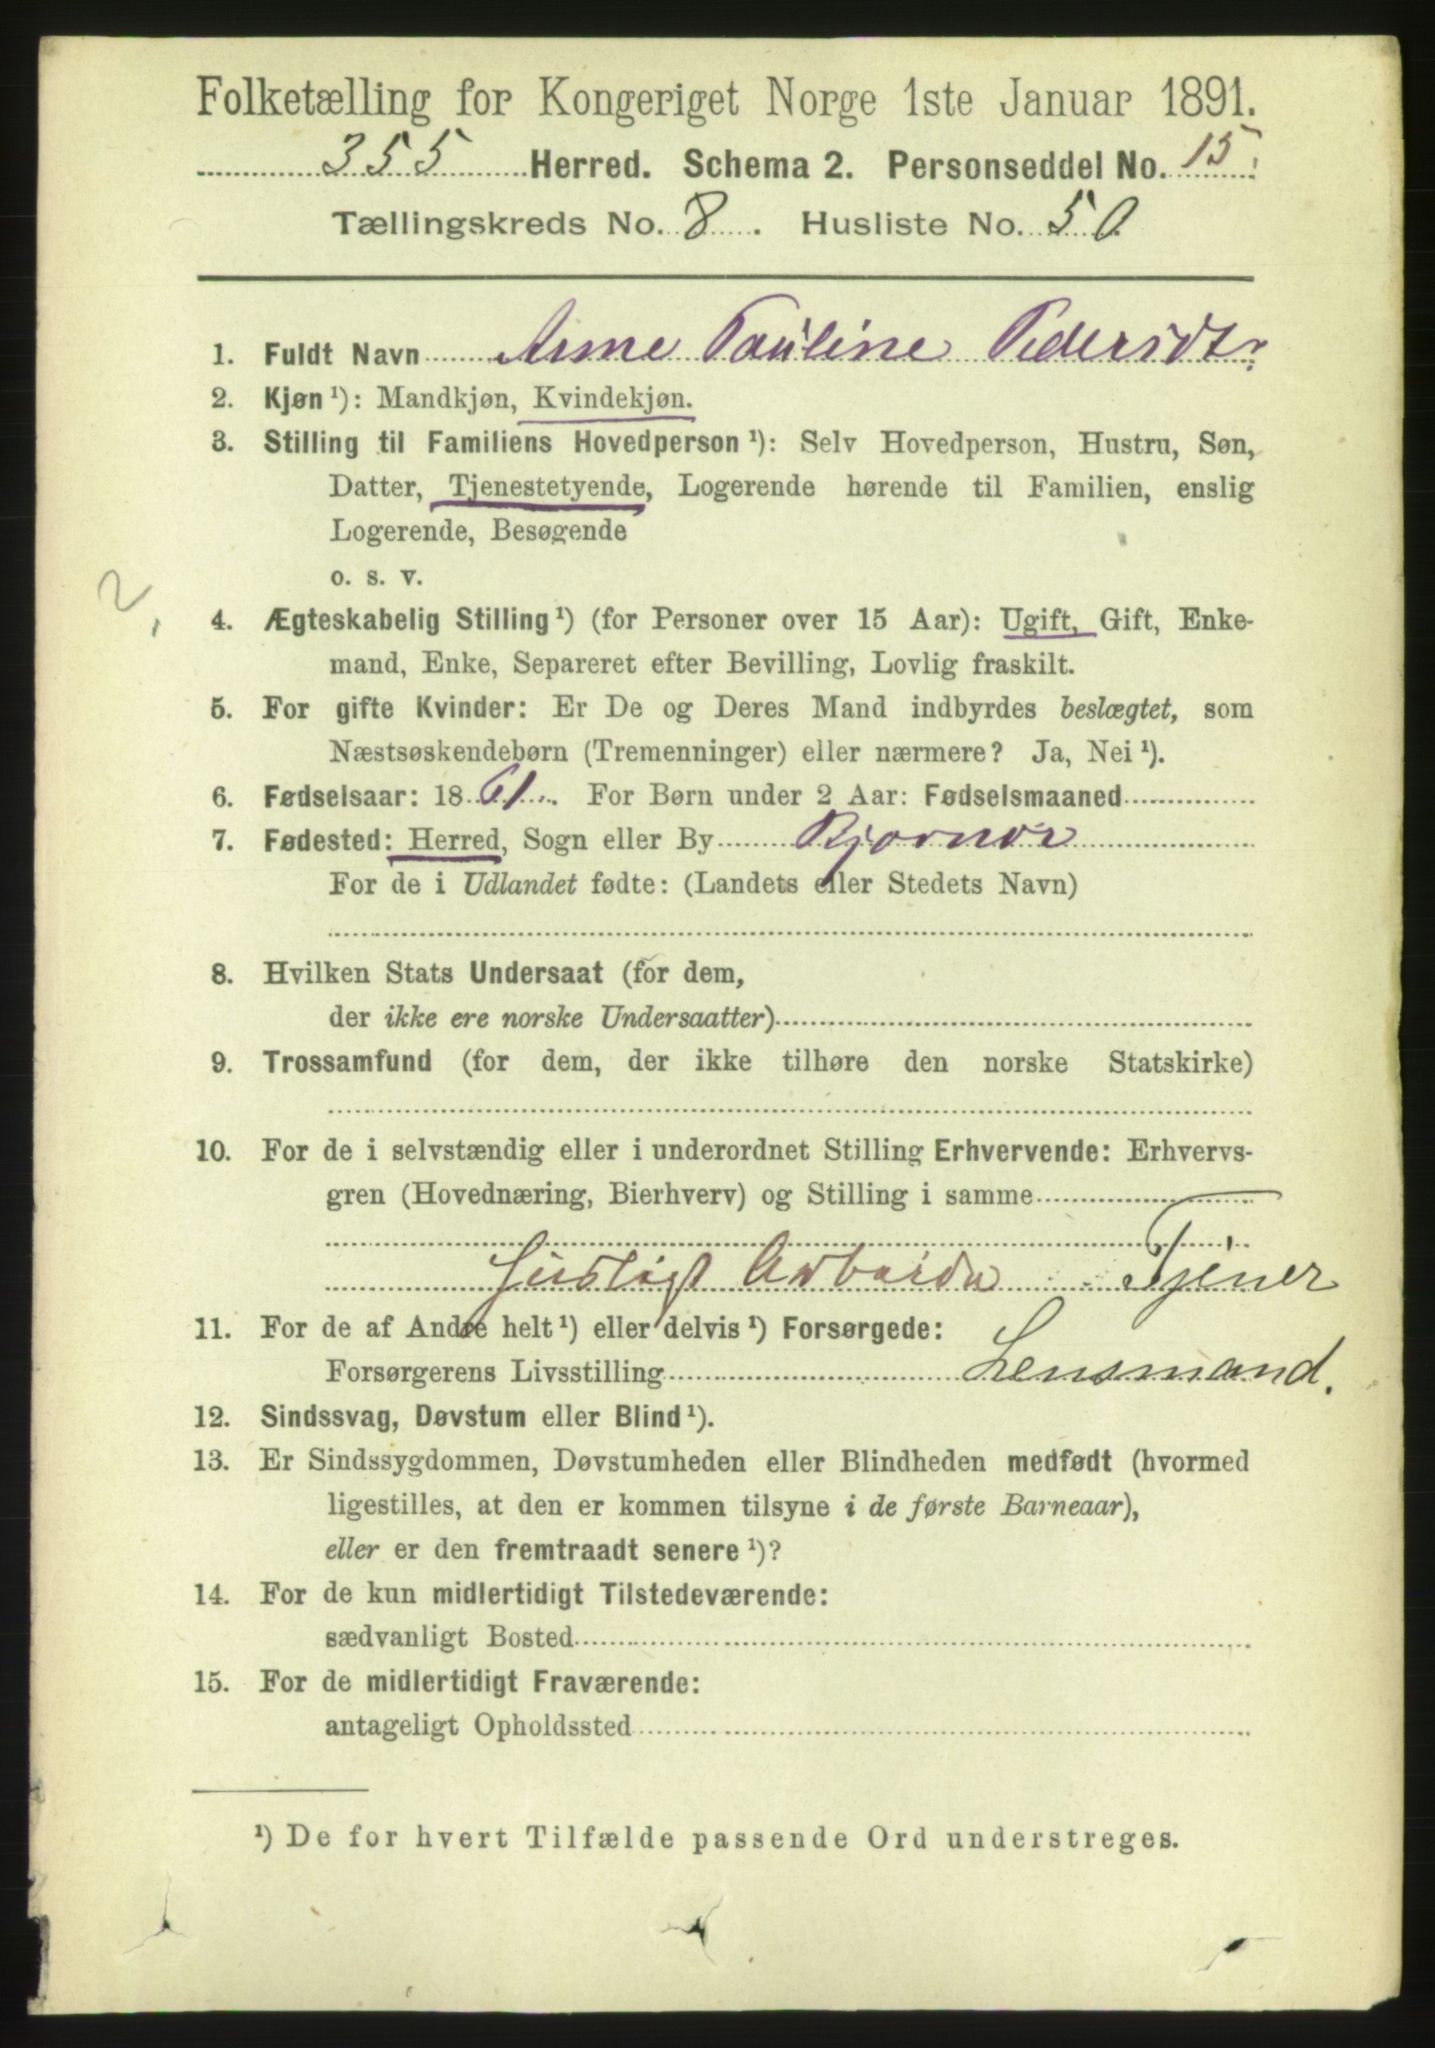 Folketælling for Kongeriget Norge 1ste Januar 1891.
355 Herred. Schema 2. Personseddel No. 15.
Tællingskreds No. 8. Husliste No. 50
1. Fuldt Navn Anne Pauline Pedersdtr
2. Kjøn ¹): Mandkjøn, Kvindekjøn.
3. Stilling til Familiens Hovedperson ¹): Selv Hovedperson, Hustru, Søn,
Datter, Tjenestetyende, Logerende hørende til Familien, enslig
Logerende, Besøgende
o. s. v.
2,
4. Ægteskabelig Stilling ¹) (for Personer over 15 Aar): Ugift, Gift, Enke-
mand, Enke, Separeret efter Bevilling, Lovlig fraskilt.
5. For gifte Kvinder: Er De og Deres Mand indbyrdes beslægtet, som
Næstsøskendebørn (Tremenninger) eller nærmere? Ja, Nei ¹).
6. Fødselsaar: 1861. For Børn under 2 Aar: Fødselsmaaned
7. Fødested: Herred, Sogn eller By Bjørnør
For de i Udlandet fødte: (Landets eller Stedets Navn)
8. Hvilken Stats Undersaat (for dem,
der ikke ere norske Undersaatter)
9. Trossamfund (for dem, der ikke tilhøre den norske Statskirke)
10. For de i selvstændig eller i underordnet Stilling Erhvervende: Erhvervs-
gren (Hovednæring, Bierhverv) og Stilling i samme
Husligt Arbeide Tjener
11. For de af Andre helt ¹) eller delvis ¹) Forsørgede:
Forsørgerens Livsstilling Lensmand.
12. Sindssvag, Døvstum eller Blind ¹).
13. Er Sindssygdommen, Døvstumheden eller Blindheden medfødt (hvormed
ligestilles, at den er kommen tilsyne i de første Barneaar),
eller er den fremtraadt senere ¹)?
14. For de kun midlertidigt Tilstedeværende:
sædvanligt Bosted
15. For de midlertidigt Fraværende:
antageligt Opholdssted
¹) De for hvert Tilfælde passende Ord understreges.